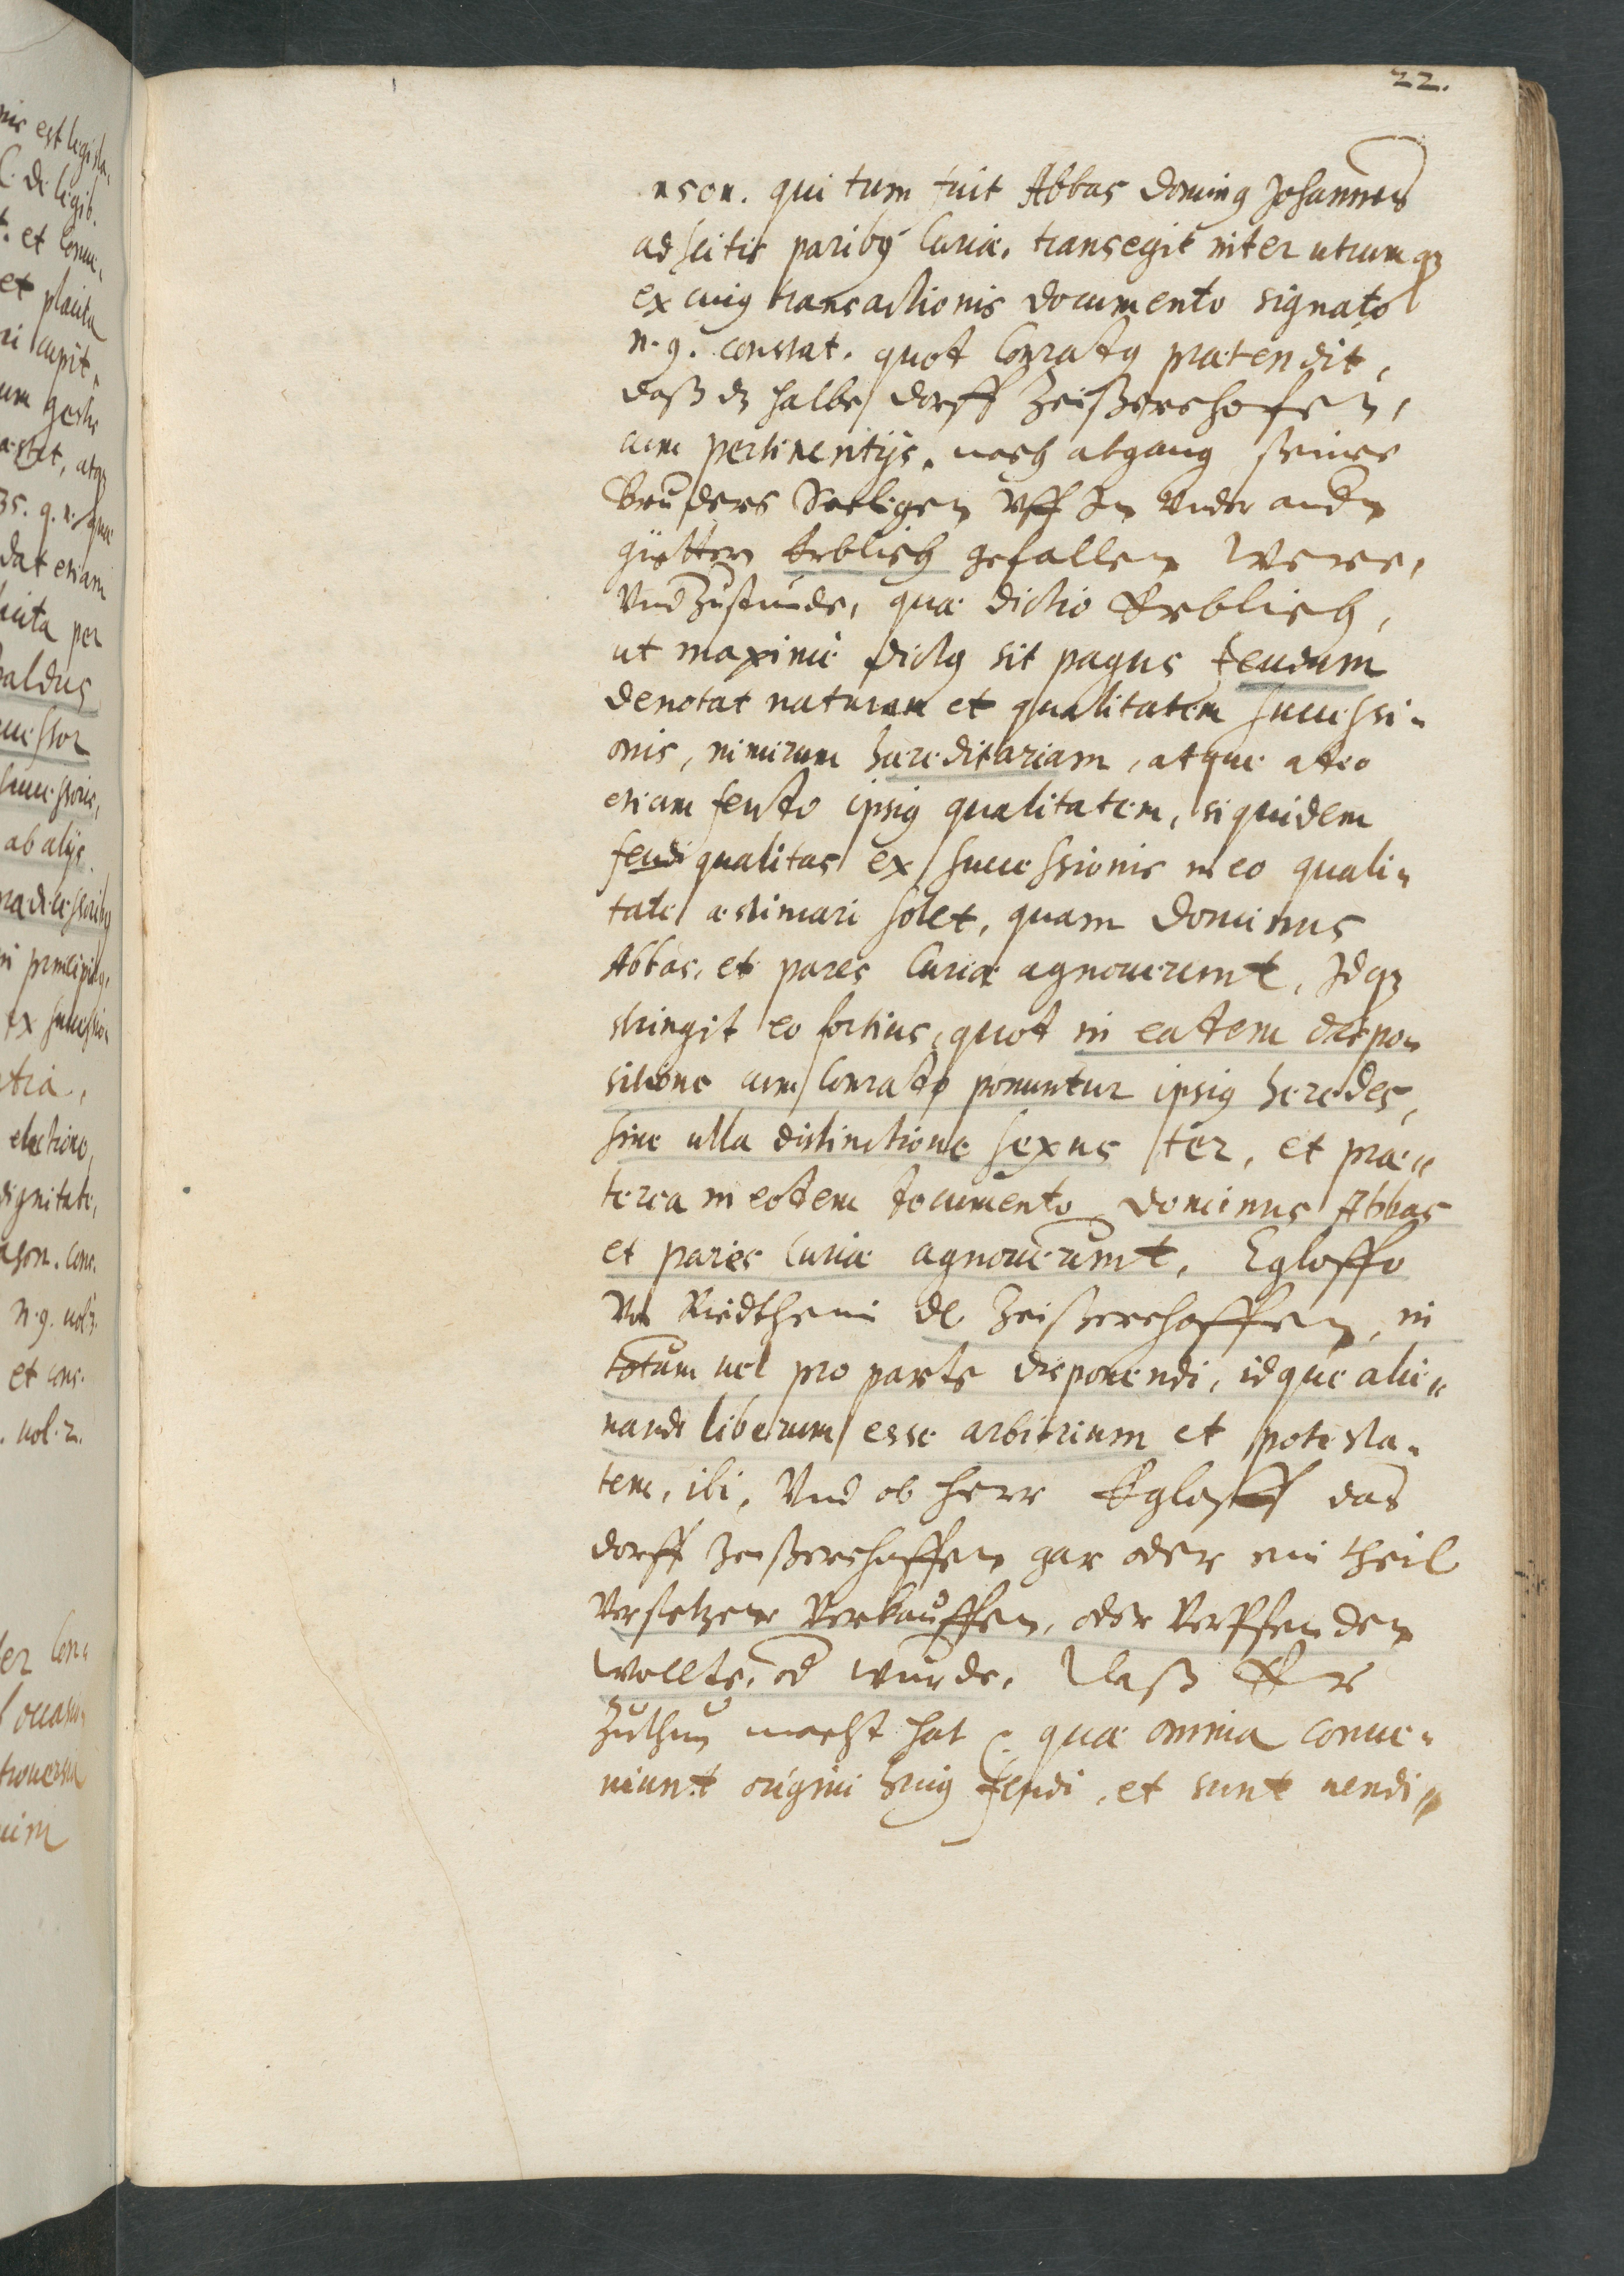 22.
nson. qui tum fuit Abbas Dominꝰ Johannes
adscitis paribꝰ Curiæ, transegit inter utrumqꝫ
ex cuiꝰ transactionis documento signato
n. 9. constat. quod Conradꝰ prætendit,
daß dz halbe dorff Zeißerschofen,
cum pertinentijs, nach abgang seines
Bruders Seeligen vff In vnder andn
güettern Erblich gefallen were,
vnd Zustunde, quæ dictio Erblich,
ut maxime dictꝰ sit pagus feudum
denotat naturam et qualitatem successi-
onis, nimirum hæreditariam, atque adeo
etiam feudo ipsiꝰ qualitatem, siquidem
feudi qualitas ex successionis in eo quali-
tate æstimari solet, quam Dominus
Abbas, et pares Curiæ agnouerunt, Idqꝫ
stringit eo fortius, quod in eadem dispo-
sitione cum Conrado ponuntur ipsiꝰ heredes,
sine ulla distinctione sexus ter, et præ-
terea in eodem documento Dominus Abbas
et pares Curiæ agnouerunt, Egloffo
Vō Riedtheim de Zeißerschoffen, in
totum uel pro parte disponendi, idque alie-
nandi liberum esse arbitrium et potesta-
tem, ibi, Vnd ob herr Egloff das
dorff Zeißerschoffen gar oder ein theil
Versetzen Verkauffen, oder Verpfenden
wollte, od wurde, daß Er
Zuthun macht hat. quæ omnia conue-
niunt origini huiꝰ feudi, et sunt uendi-